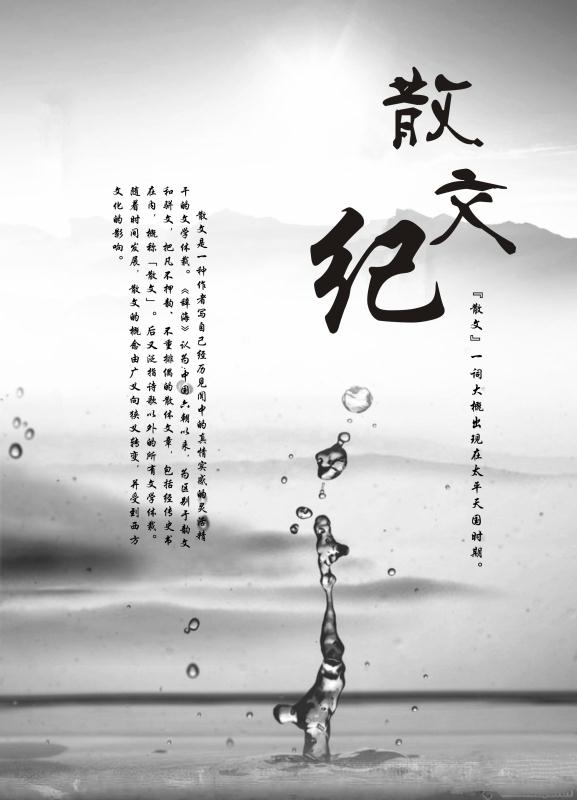 散文纪
『散文』一词大概出现在太平天国时期。
散文是一种作者写自己经历见闻中的真情实感的灵活精
干的文学体裁。《辞海》认为：中国六朝以来，为区别于韵文
和骈文，把凡不押韵、不重排偶的散体文章，包括经传史书
在内，概称「散文」。后又泛指诗歌以外的所有文学体裁。
随着时间发展，散文的概念由广义向狭义转变，并受到西方
文化的影响。